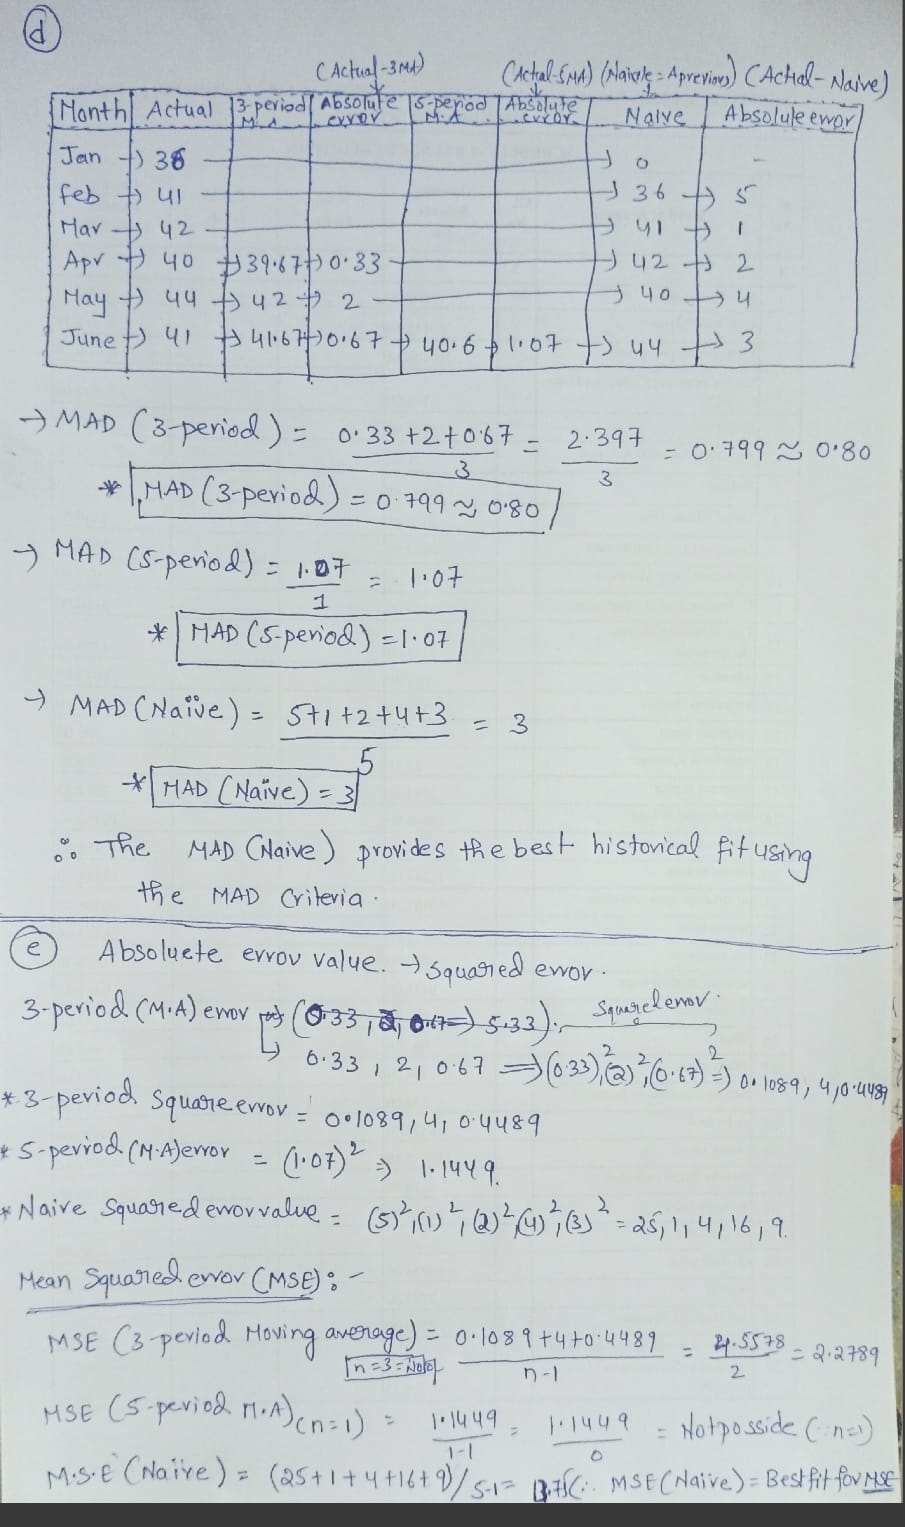 d
(Actual-3MA) (Actual-5MA) (Naive = Aprevious) (Actual-Naive)
Month Actual 3-period M.A Absolute error 5-period M.A Absolute error Naive Absolute error
Jan → 36 → 0 -
Feb → 41 → 36 → 5
Mar → 42 → 41 → 1
Apr → 40 → 39.67 → 0.33 → 42 → 2
May → 44 → 42 → 2 → 40 → 4
June → 41 → 41.67 → 0.67 → 40.6 → 1.07 → 44 → 3
→ MAD (3-period) = 0.33+2+0.67 / 3 = 2.397 / 3 = 0.799 ≈ 0.80
* MAD (3-period) = 0.799 ≈ 0.80
→ MAD (5-period) = 1.07 / 1 = 1.07
* MAD (5-period) = 1.07
→ MAD (Naïve) = 5+1+2+4+3 / 5 = 3
* MAD (Naïve) = 3
∴ The MAD (Naive) provides the best historical fit using
the MAD Criteria.
e Absoluete error value. → Squared error.
3-period (M.A) error → (0.33, 2, 0.67 ⇒ 5.33). Squared error
↳ 0.33, 2, 0.67 ⇒ (0.33)², (2)², (0.67)² ⇒ 0.1089, 4, 0.4489
* 3-period Square error = 0.1089, 4, 0.4489
* 5-period (M.A) error = (1.07)² ⇒ 1.1449.
* Naive Squared error value = (5)², (1)², (2)², (4)², (3)² = 25, 1, 4, 16, 9.
Mean Squared error (MSE) :-
MSE (3-period Moving average) = 0.1089+4+0.4489 / n-1 = 4.5578 / 2 = 2.2789
n=3=No of
MSE (5-period M.A) (n=1) = 1.1449 / 1-1 = 1.1449 / 0 = Not posside (∵ n=1)
M.S.E (Naïve) = (25+1+4+16+9) / 5-1 = 13.75 (∴ MSE (Naive) = Best fit for MSE